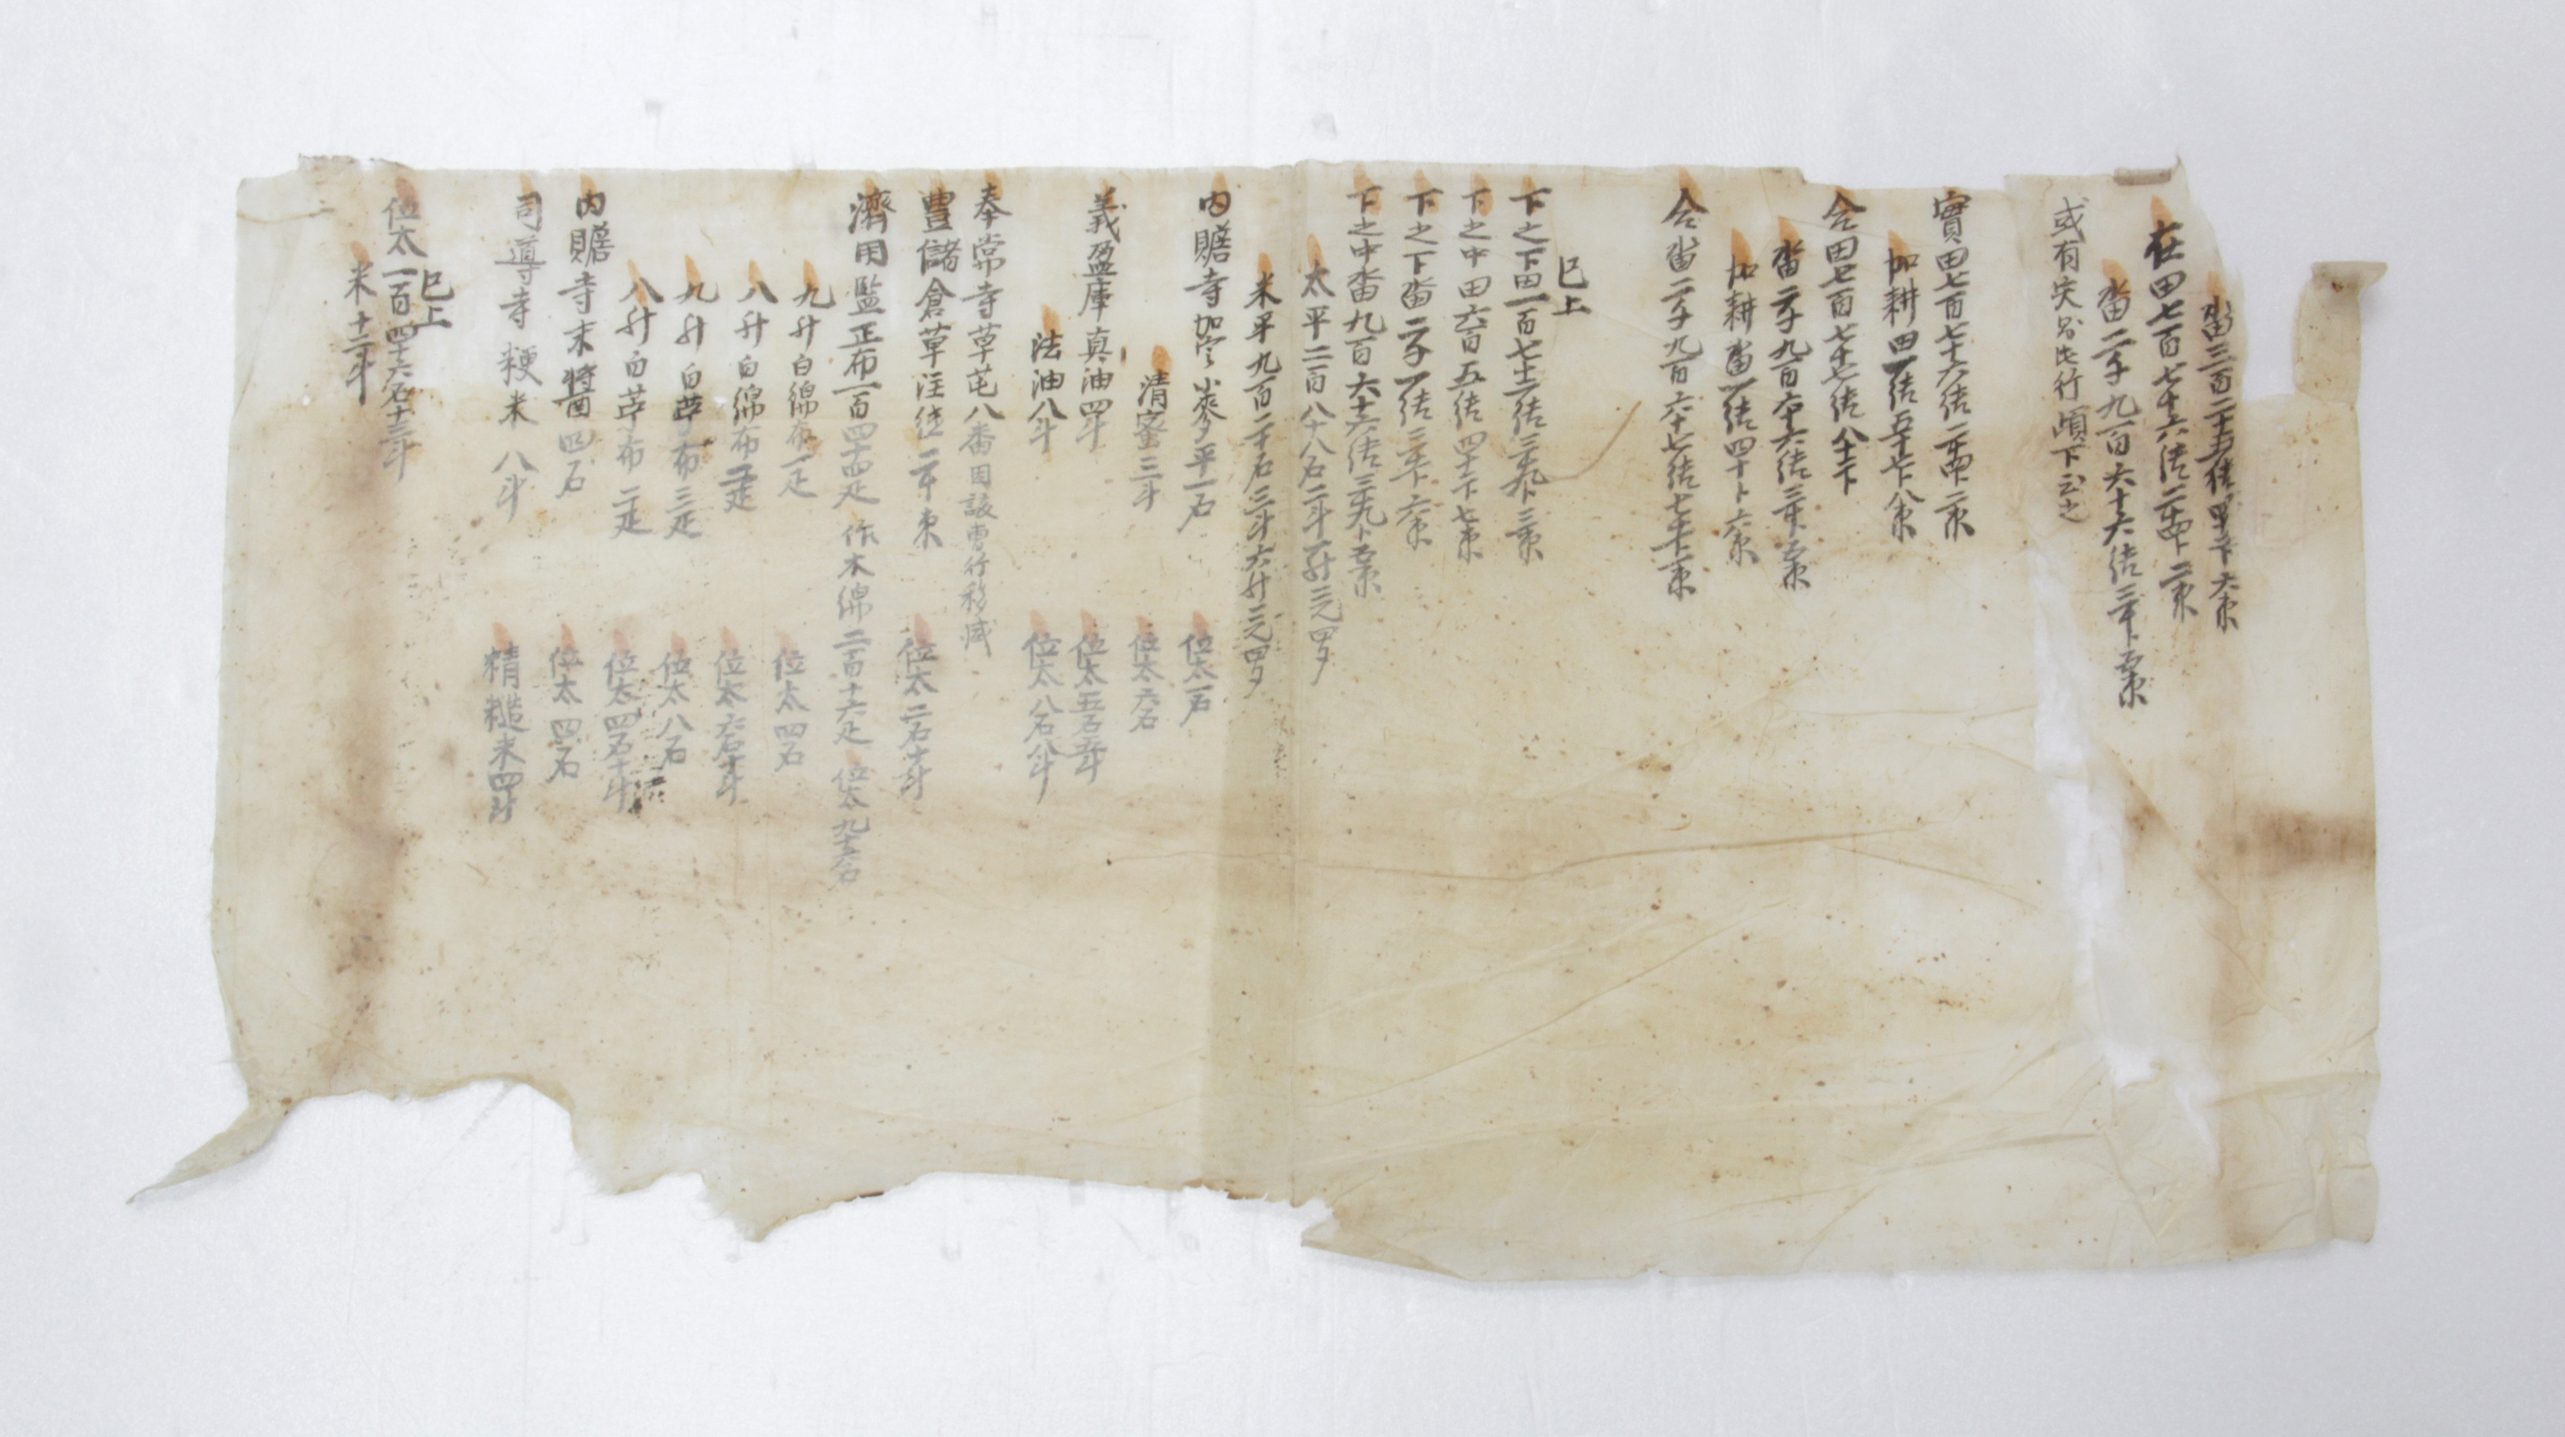 畓三百二十五結四十卜六束
在田七百七十六結二十四卜二束
畓二千九百六十六結三十卜五束
或有災㫆此行頉下云之
實田七百七十六結二十四卜二束
加耕田一結五十七卜八束
合田七百七十七結八十二卜
畓二千九百六十六結三十卜五束
加耕畓一結四十卜六束
合畓二千九百六十七結七十一卜一束
已上
下之下田一百七十二結三十九卜三束
下之中田六百五結四十二卜七束
下之下畓二千一結三十一卜六束
下之中畓九百六十六結三十九卜五束
太平二百八十八石二斗一升三合四夕
米平九百二十石三斗六升三合四夕
內贍寺加定小麥平一石 位太一石
淸蜜三斗 位太六石
義盈庫眞油四斗 位太五石五斗
法油八斗 位太八石八斗
奉常寺草芚八番因該曹行移減
豊儲倉草注紙二十束 位太二石十斗
濟用監正布一百四十四疋 作木綿二百十六疋 位太九十六石
九升白綿布一疋 位太四石
八升白綿布二疋 位太六石十斗
九升白苧布三疋 位太八石
八升白苧布二疋 位太四石十斗
內贍寺末醬四石 位太四石
司䆃寺粳米八斗 精糙米四斗
已上
位太一百四十六石十三斗
米十二斗